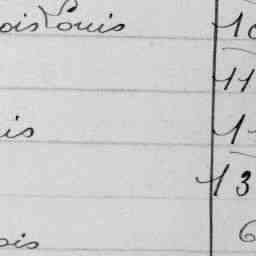 ois Louis 10
11
is 1
13
ois 6